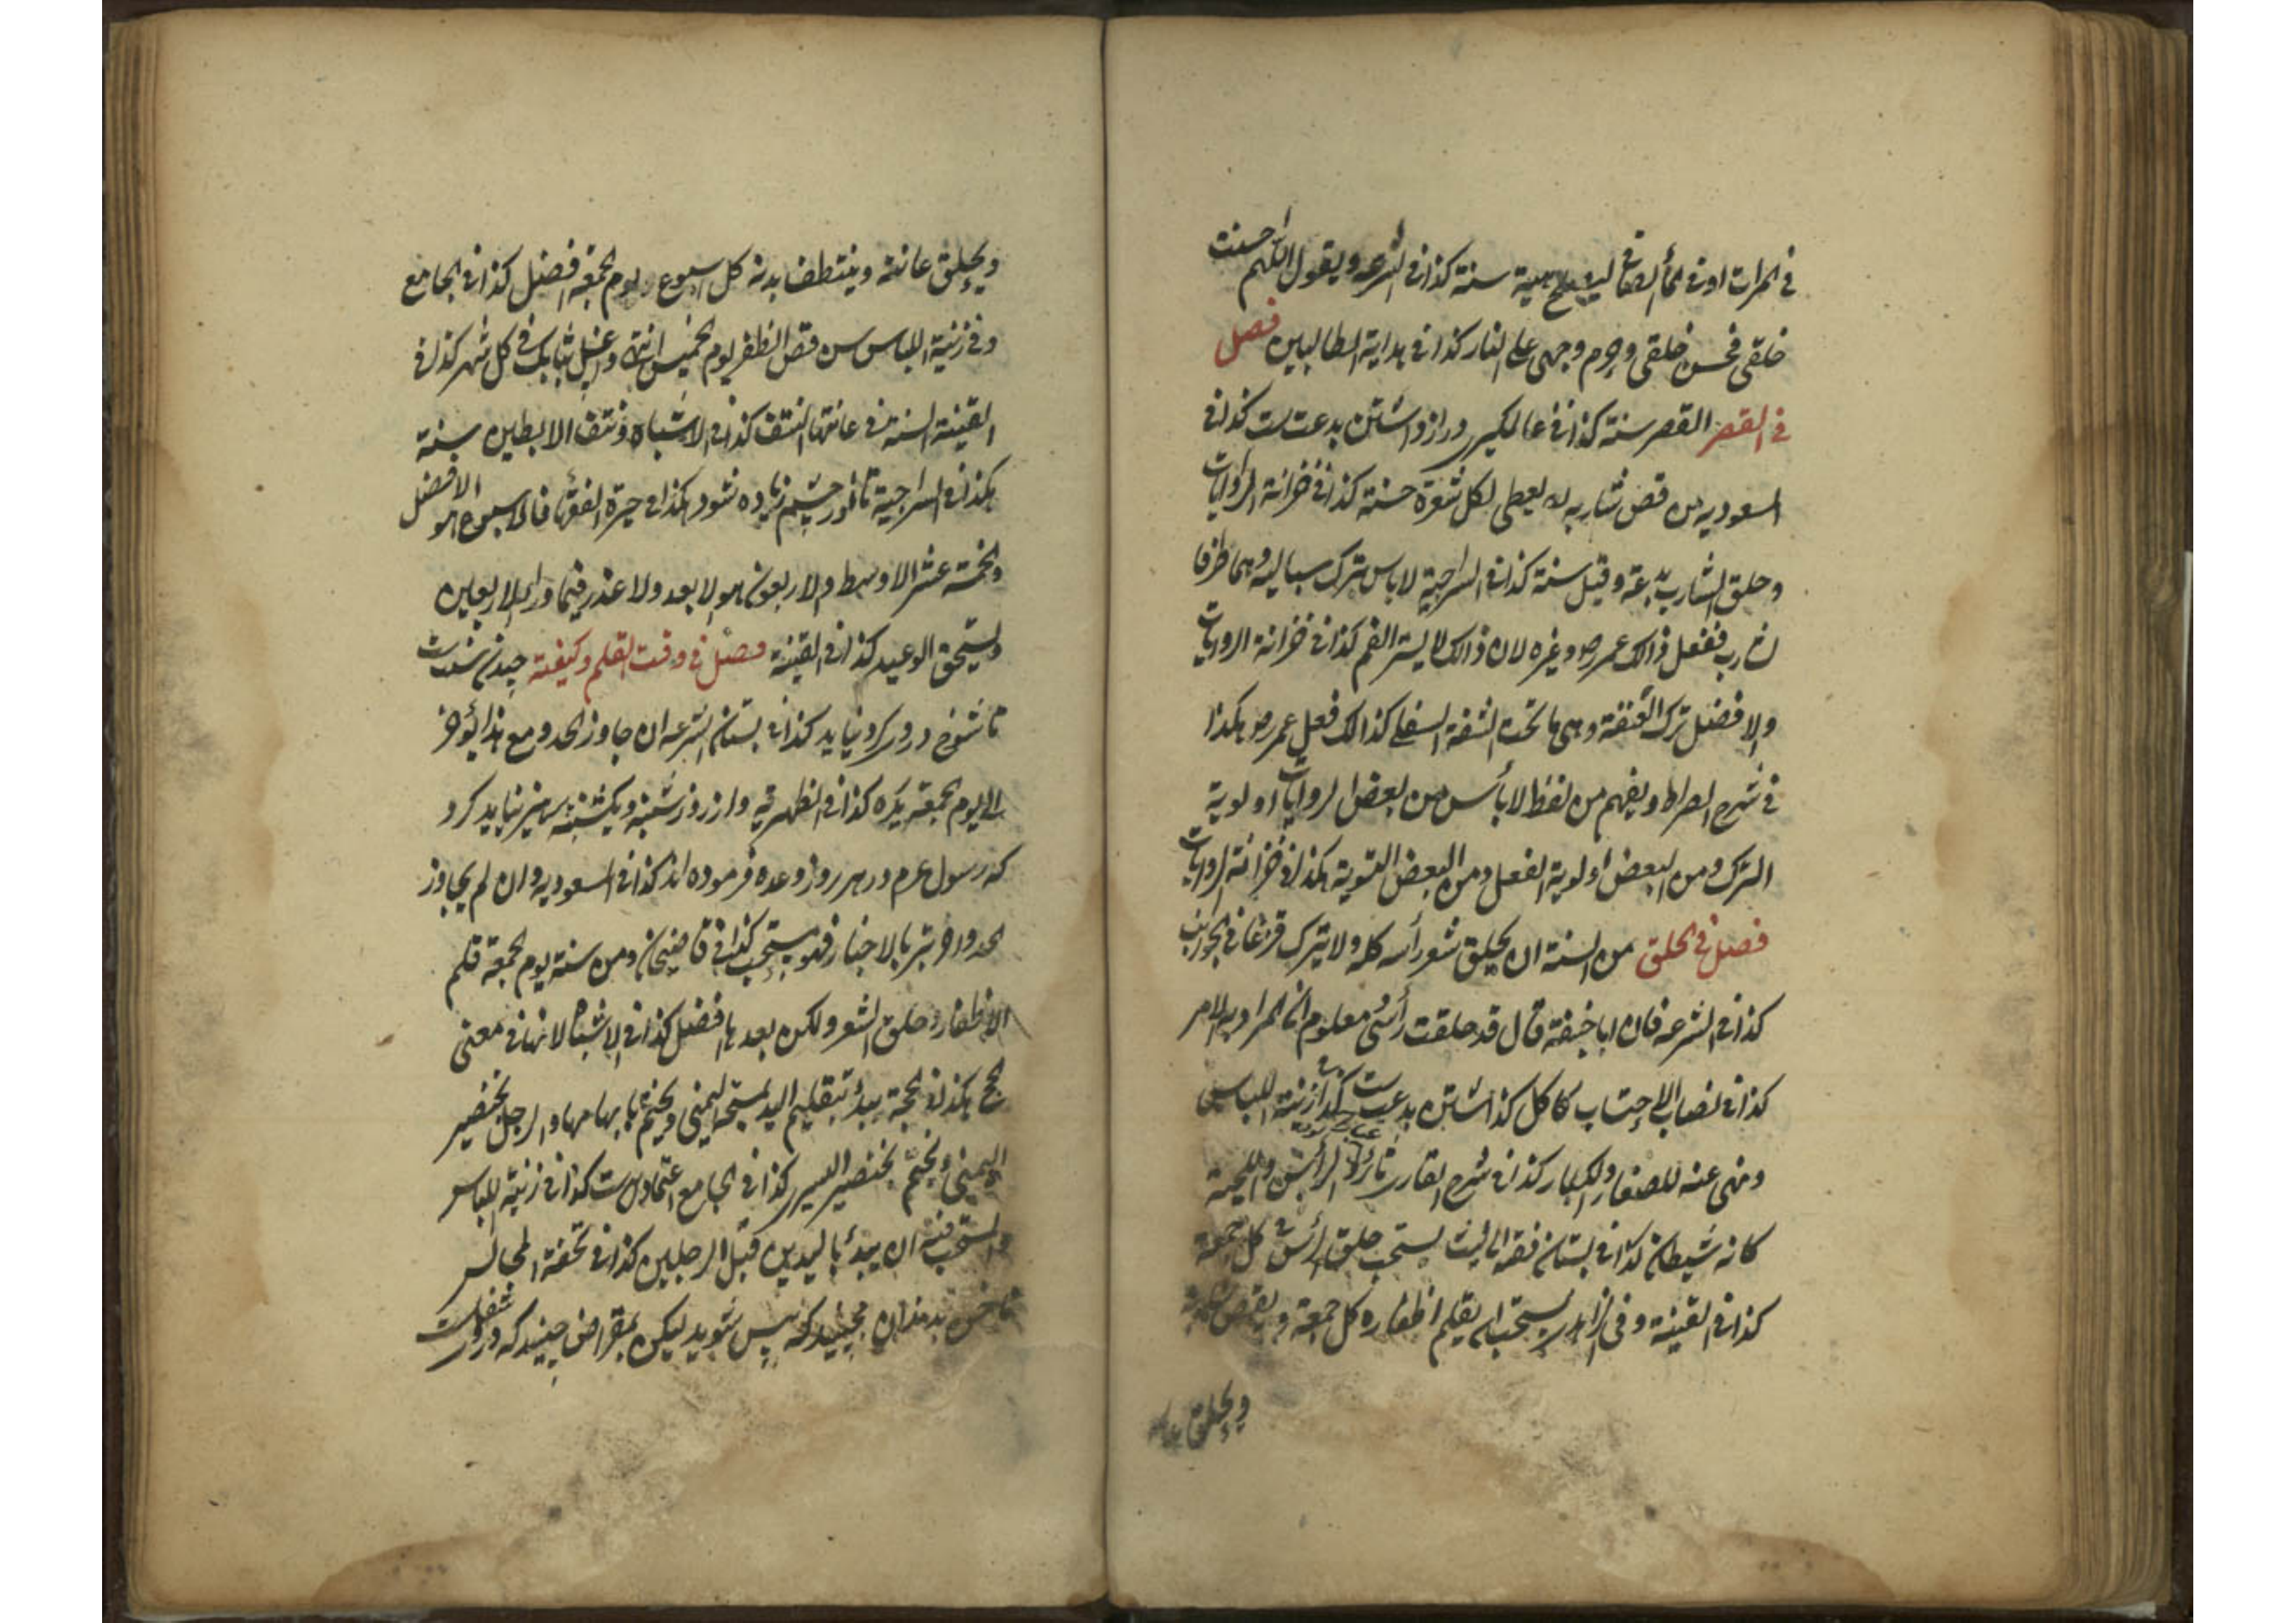 في المرات او في الماء الصافي ليصلح هيئة سنة كذا في الشرعه ويقول اللهم احسنت
خلقي فحسن خلقي وحرم وجهي على النار كذا في بداية الطالبين فصل
في القصر القصر سنة كذا في عالمكير دراز داشتن بدعت است كذا في
المسعوديه من قص شاربه له يعطى لكل شعرة حسنة كذا في خزانة الروايات
وحلق الشارب بدعة وقيل سنة كذا في السراجية لاباس بترك سباليه وهما طرفا
الشارب ففعل ذالك عمر رض وغيره لان ذالك لا يستر الفم كذا في خزانة الروايات
والافضل ترك العنفقة وهي ما تحت الشفة السفلى كذالك فعل عمر رض هكذا
في شرح الصراط ويفهم من لفظ لا بأس من بعض الروايات اولوية
الترك ومن البعض اولوية الفعل ومن البعض التسوية هكذا في خزانة الروايات
فصل في الحلق من السنة ان يحلق شعر رأسه كله ولا يترك قزعا في الجوانب
كذا في الشرعه فان ابا حنيفة قال قد حلقت رأسى معلوم
كذا في نصاب الاحتساب كاكل كذاشتن بدعت است كذا زينة اللباس
ونهى عنه للصغار والكبار كذا في شرح القارى ثائر الرأس واللحية
كانه شيطان كذا في بستان فقه ابى ليث يستحب حلق الرأس في كل جمعة
كذا في القينة وفي يستحب ان يقلم اظفاره كل جمعة ويقص شاربه
ويحلق عانته
ويحلق عانته وينتطف بدنه كل اسبوع ويوم الجمعة افضل كذا في الجامع
وفي زنية اللباس سن قص الظفر يوم الخميس انتهى وغسل ثيابك في كل شهر كذا في
القينة السنة في عانتها النتف كذا في الاشباه ونتف الابطين سنة
هكذا في السراجية تا نور چشم زياده شود هكذا في حيرة الفقها فالاسبوع هو الافضل
والخمسة عشر الاوسط والاربعون هو الابعد ولا عذر فيما وراء الاربعين
ويستحق الوعيد كذا في القينة فصل في وقت القلم وكيفيته چيدن سنت است
تا شوخ درو كرد نيايد كذا في بستان الشرعه ان جاوز الحد ومع هذا يؤخر
الى يوم الجمعة يكره كذا في الظهرية واز روز شنبه ويكشنبه پرهيز نبايد كرد
كه رسول عم در هر روز وعده فرموده اند كذا في المسعوديه وان لم يجاوز
الحد واخر تبريا بالاخبار فهو مستحب كذا في قاضيخان ومن سنة يوم الجمعة قلم
الاظفار وحلق الشعر ولكن بعدها افضل كذا في الاشباه لانها في معنى
الحج هكذا في الحجة يبدأ بتقليم اليد بمسبحة اليمنى ويختم بابهامها والرجل بخنصر
اليمنى ويختم بخنصر اليسرى كذا في الجامع اعتماد است كذا في زنية اللباس
والمستحب فيه ان يبدأ باليدين قبل الرجلين كذا في تحفة المجالس
ناخن بدندان مچينيد كه پيس شويد ليكن بمقراض چينيد كه درو شفا است